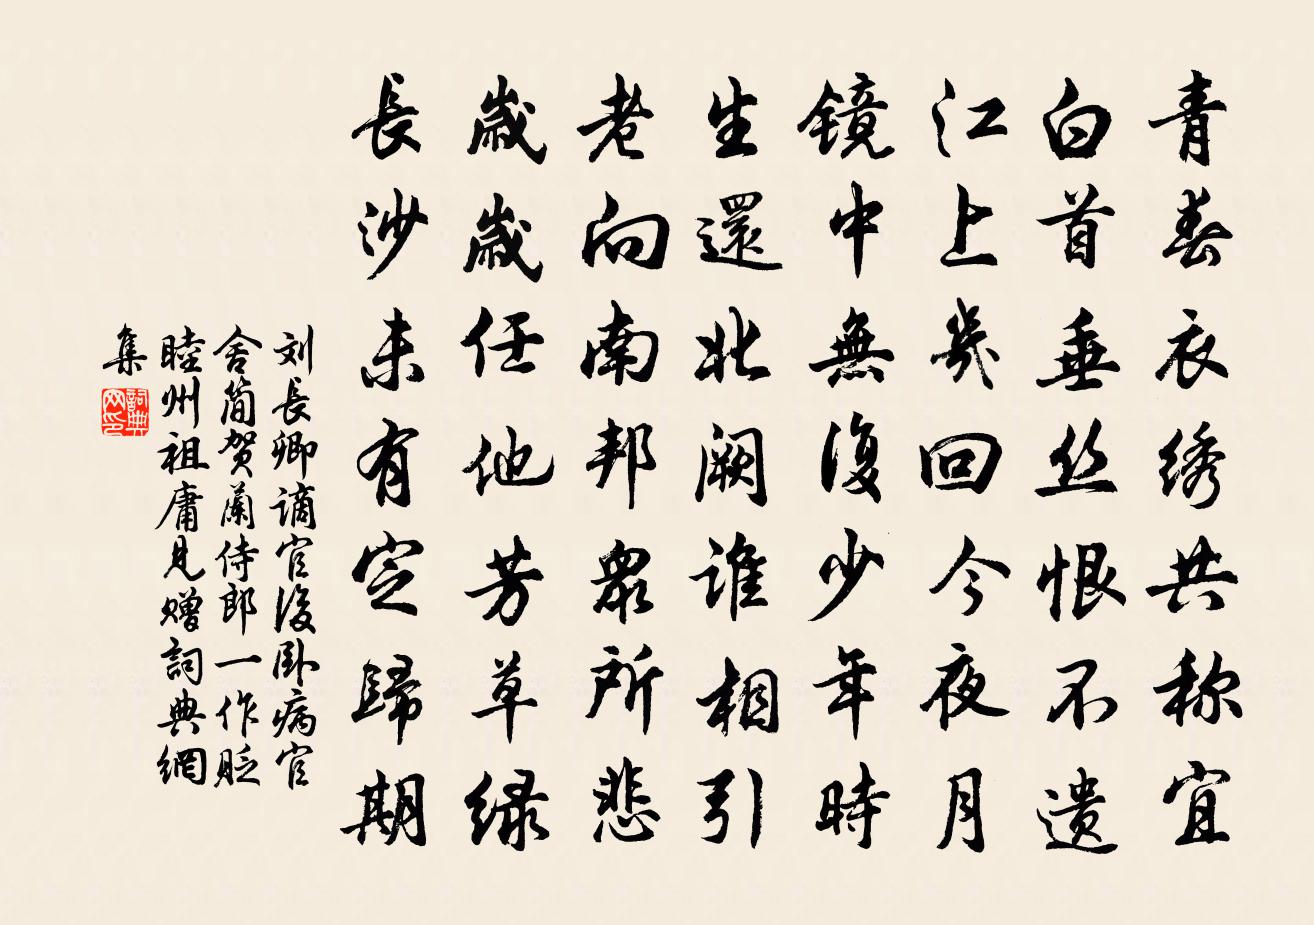 青春衣绣共称宜
白首垂丝恨不遗
江上幾回今夜月
镜中無復少年時
生還北阙谁相引
老向南邦衆所悲
歲歲任他芳草绿
長沙未有定歸期
刘長卿谪官後卧病官
舍简贺蘭侍郎一作贬
睦州祖庸见赠詞典網
集
詞典
网印